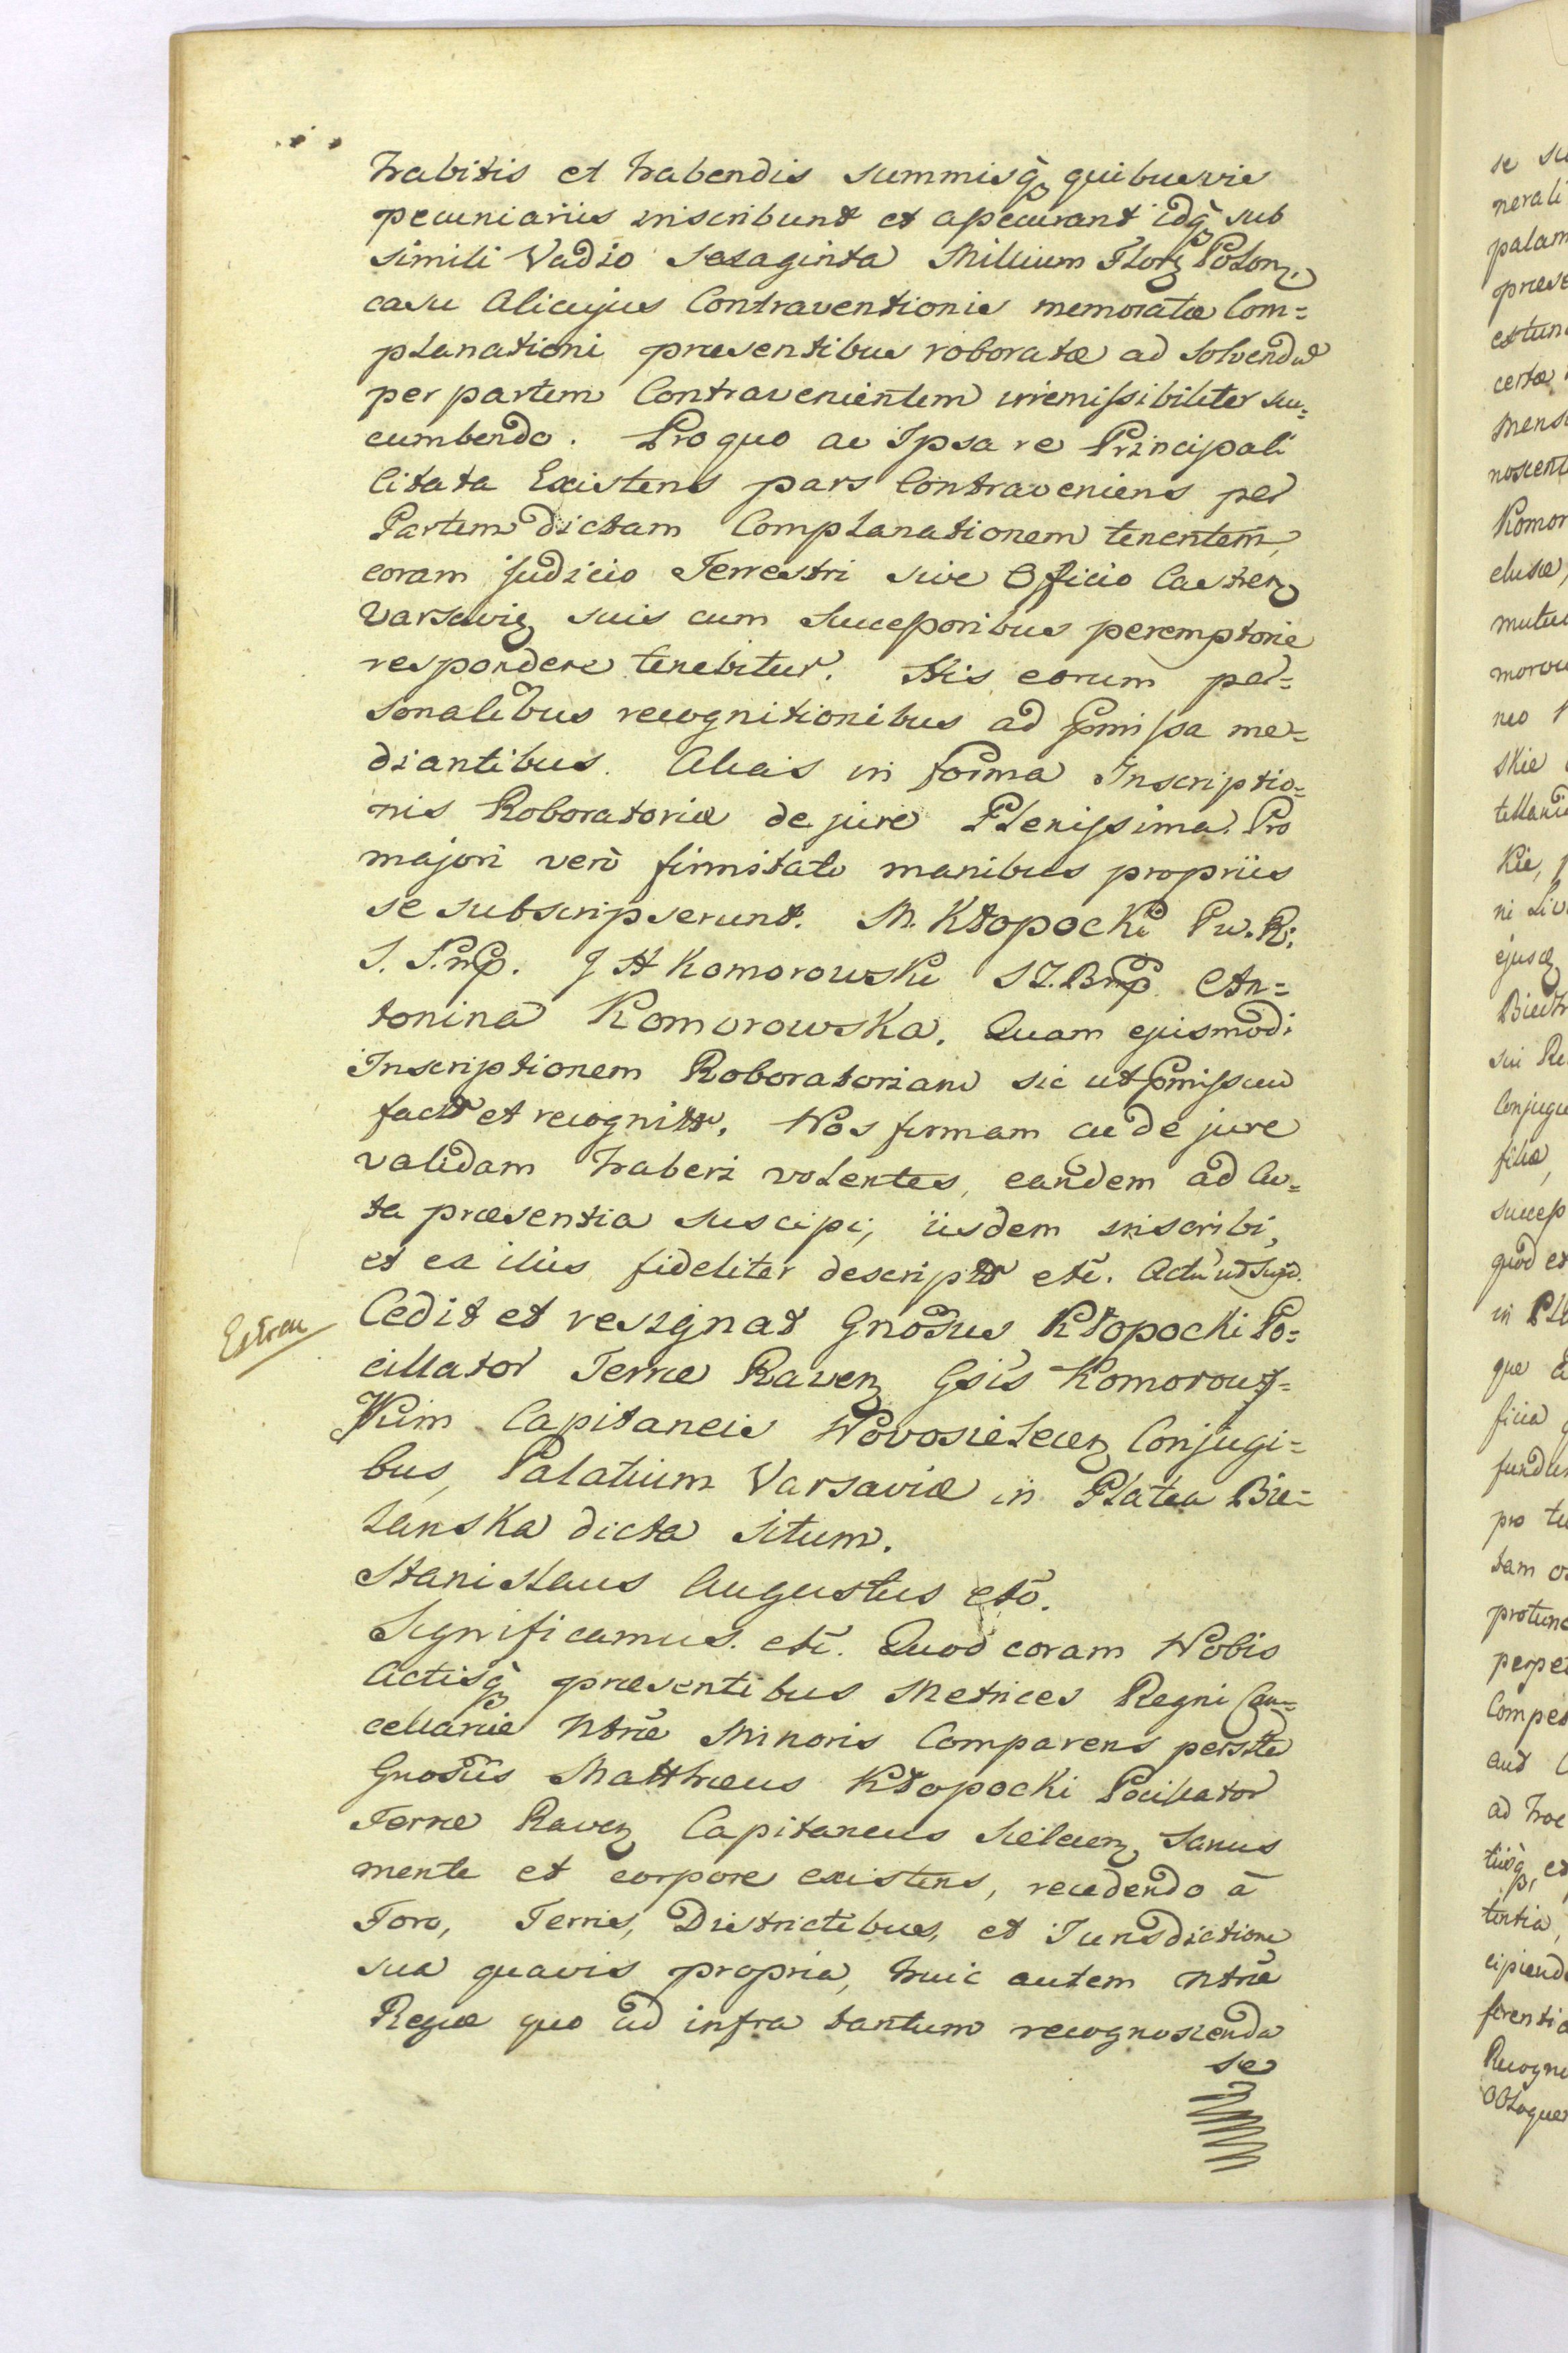 habitis et habendis summisq̀ quibusvis
pecuniariis inscribunt et assecurant idq̀ sub
simili Vadio Sexaginta Millium Flor Polon,
casu alicujus Contraventionis memoratæ Com=
planationi præsentibus roboratæ ad Solvend
per partem Contravenientem irremissibiliter suc=
cumbendo. Pro quo ac Ipsa re Principali
Citata Existens pars Contraveniens per
Partem dictam Complanationem tenentem,
coram Judicio Terrestri sive Officio Castren
Varsavien suis cum Successoribus peremptorie
respondere tenebitur. His eorum per=
sonalibus recognitionibus ad pmissa me=
diantibus. Alias in forma Inscriptio=
nis Roboratoriæ de jure Plenissima. Pro
majori verò firmitate manibus propriis
se subscripserunt. M. Kłopocki Pw. R.
S. S. mp. J H Komorowski S Z. B mp An=
tonina Komorowska. Quam ejusmodi
Inscriptionem Roboratoriam sic ut pmissum
fact et recognitt. Nos firmam ac de jure
validam haberi volentes, eandem ad Ac=
ta præsentia suscipi, iisdem inscribi,
et ea illis fideliter descript etc̃. Actũ ut Sup.
Extrau
Cedit et resignat Gnosus Kłopocki Po=
cillator Terræ Raven Gsis Komorows=
kim Capitaneis Novosielecen Conjugi=
bus, Palatium Varsaviæ in Platea Bie=
lanska dicta situm.
Stanislaus Augustus etc̃.
Significamus. etc̃. Quod coram Nobis
Actisq̀ præsentibus Metrices Regni Can=
cellariæ Ntræ Minoris Comparens persrte
Gnosus Matthæus Kłopocki Pocillator
Terræ Raven Capitaneus Sielcen, Sanus
mente et corpore existens, recedendo à
Foro, Terris, Districtibus, et Jurisdictione
sua quavis propria, huic autem ntræ
Regiæ quo ad infra tantum recognoscenda
se